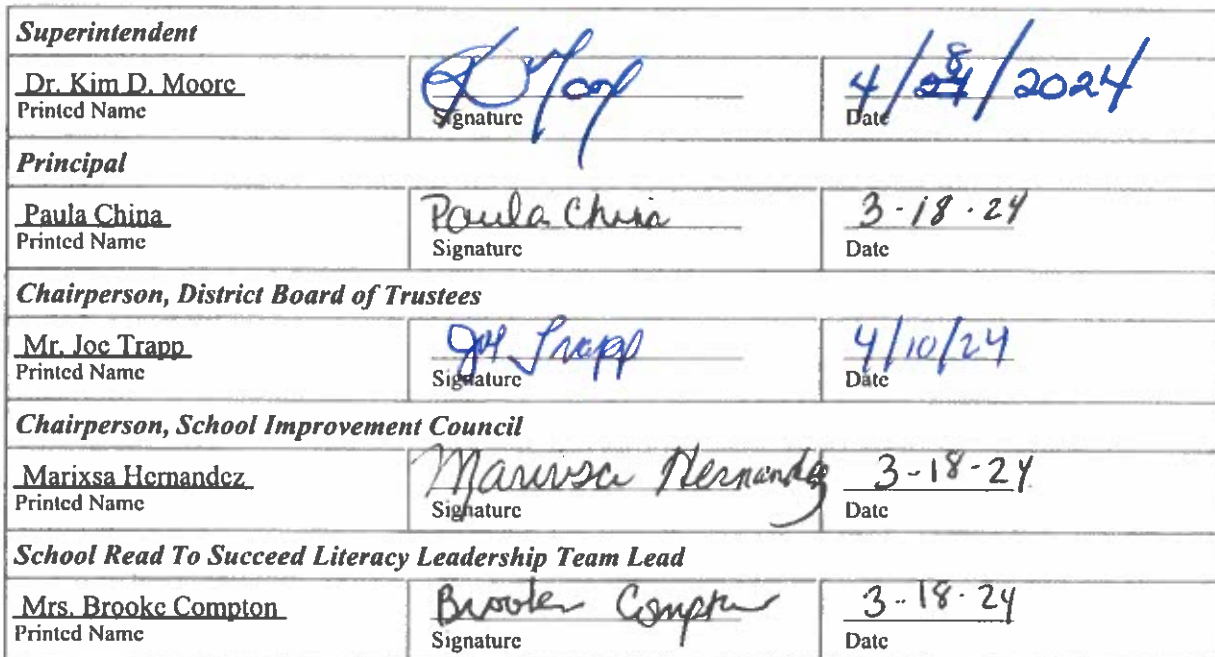 Superintendent
Dr. Kim D. Moore
Printed Name
Signature
4/8/2024
Date
Principal
Paula China
Printed Name
Paula China
Signature
3-18-24
Date
Chairperson, District Board of Trustees
Mr. Joe Trapp
Printed Name
Joe Trapp
Signature
4/10/24
Date
Chairperson, School Improvement Council
Marixsa Hernandez
Printed Name
Marixsa Hernandez
Signature
3-18-24
Date
School Read To Succeed Literacy Leadership Team Lead
Mrs. Brooke Compton
Printed Name
Brooke Compton
Signature
3-18-24
Date